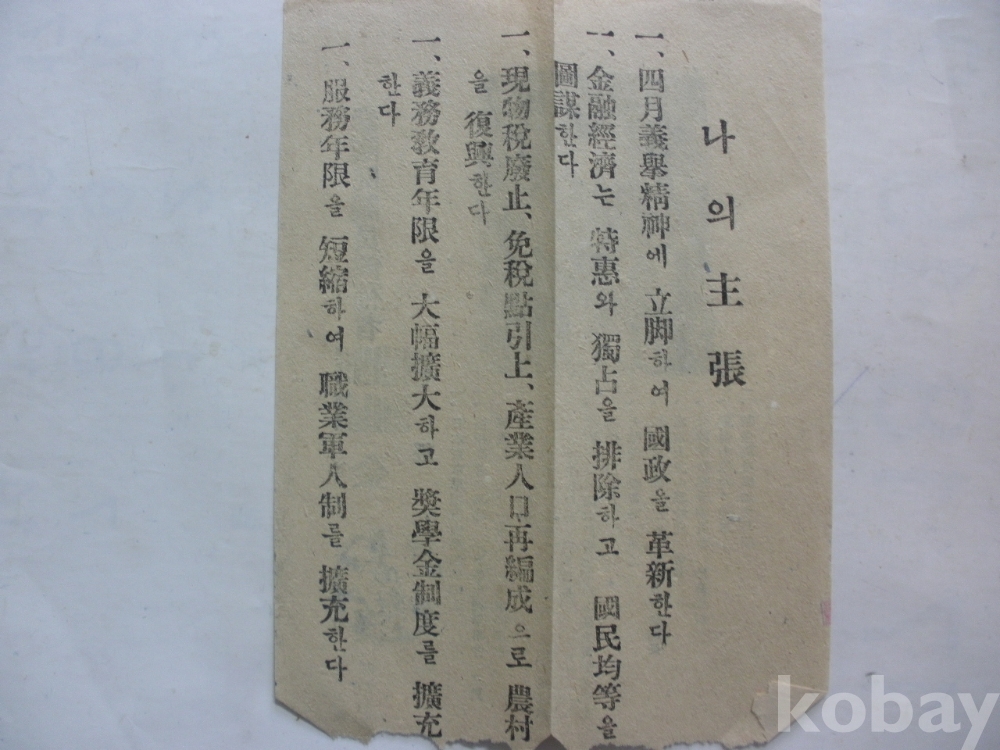 나의 主張
一、四月義擧精神에 立脚하여 國政을 革新한다
一、金融經濟는 特惠와 獨占을 排除하고 國民均等을
圖謀한다
一、現物稅廢止、免稅點引上、產業人口再編成으로 農村
을 復興한다
一、義務敎育年限을 大幅擴大하고 奬學金制度를 擴充
한다
一、服務年限을 短縮하여 職業軍人制를 擴充한다
kobay